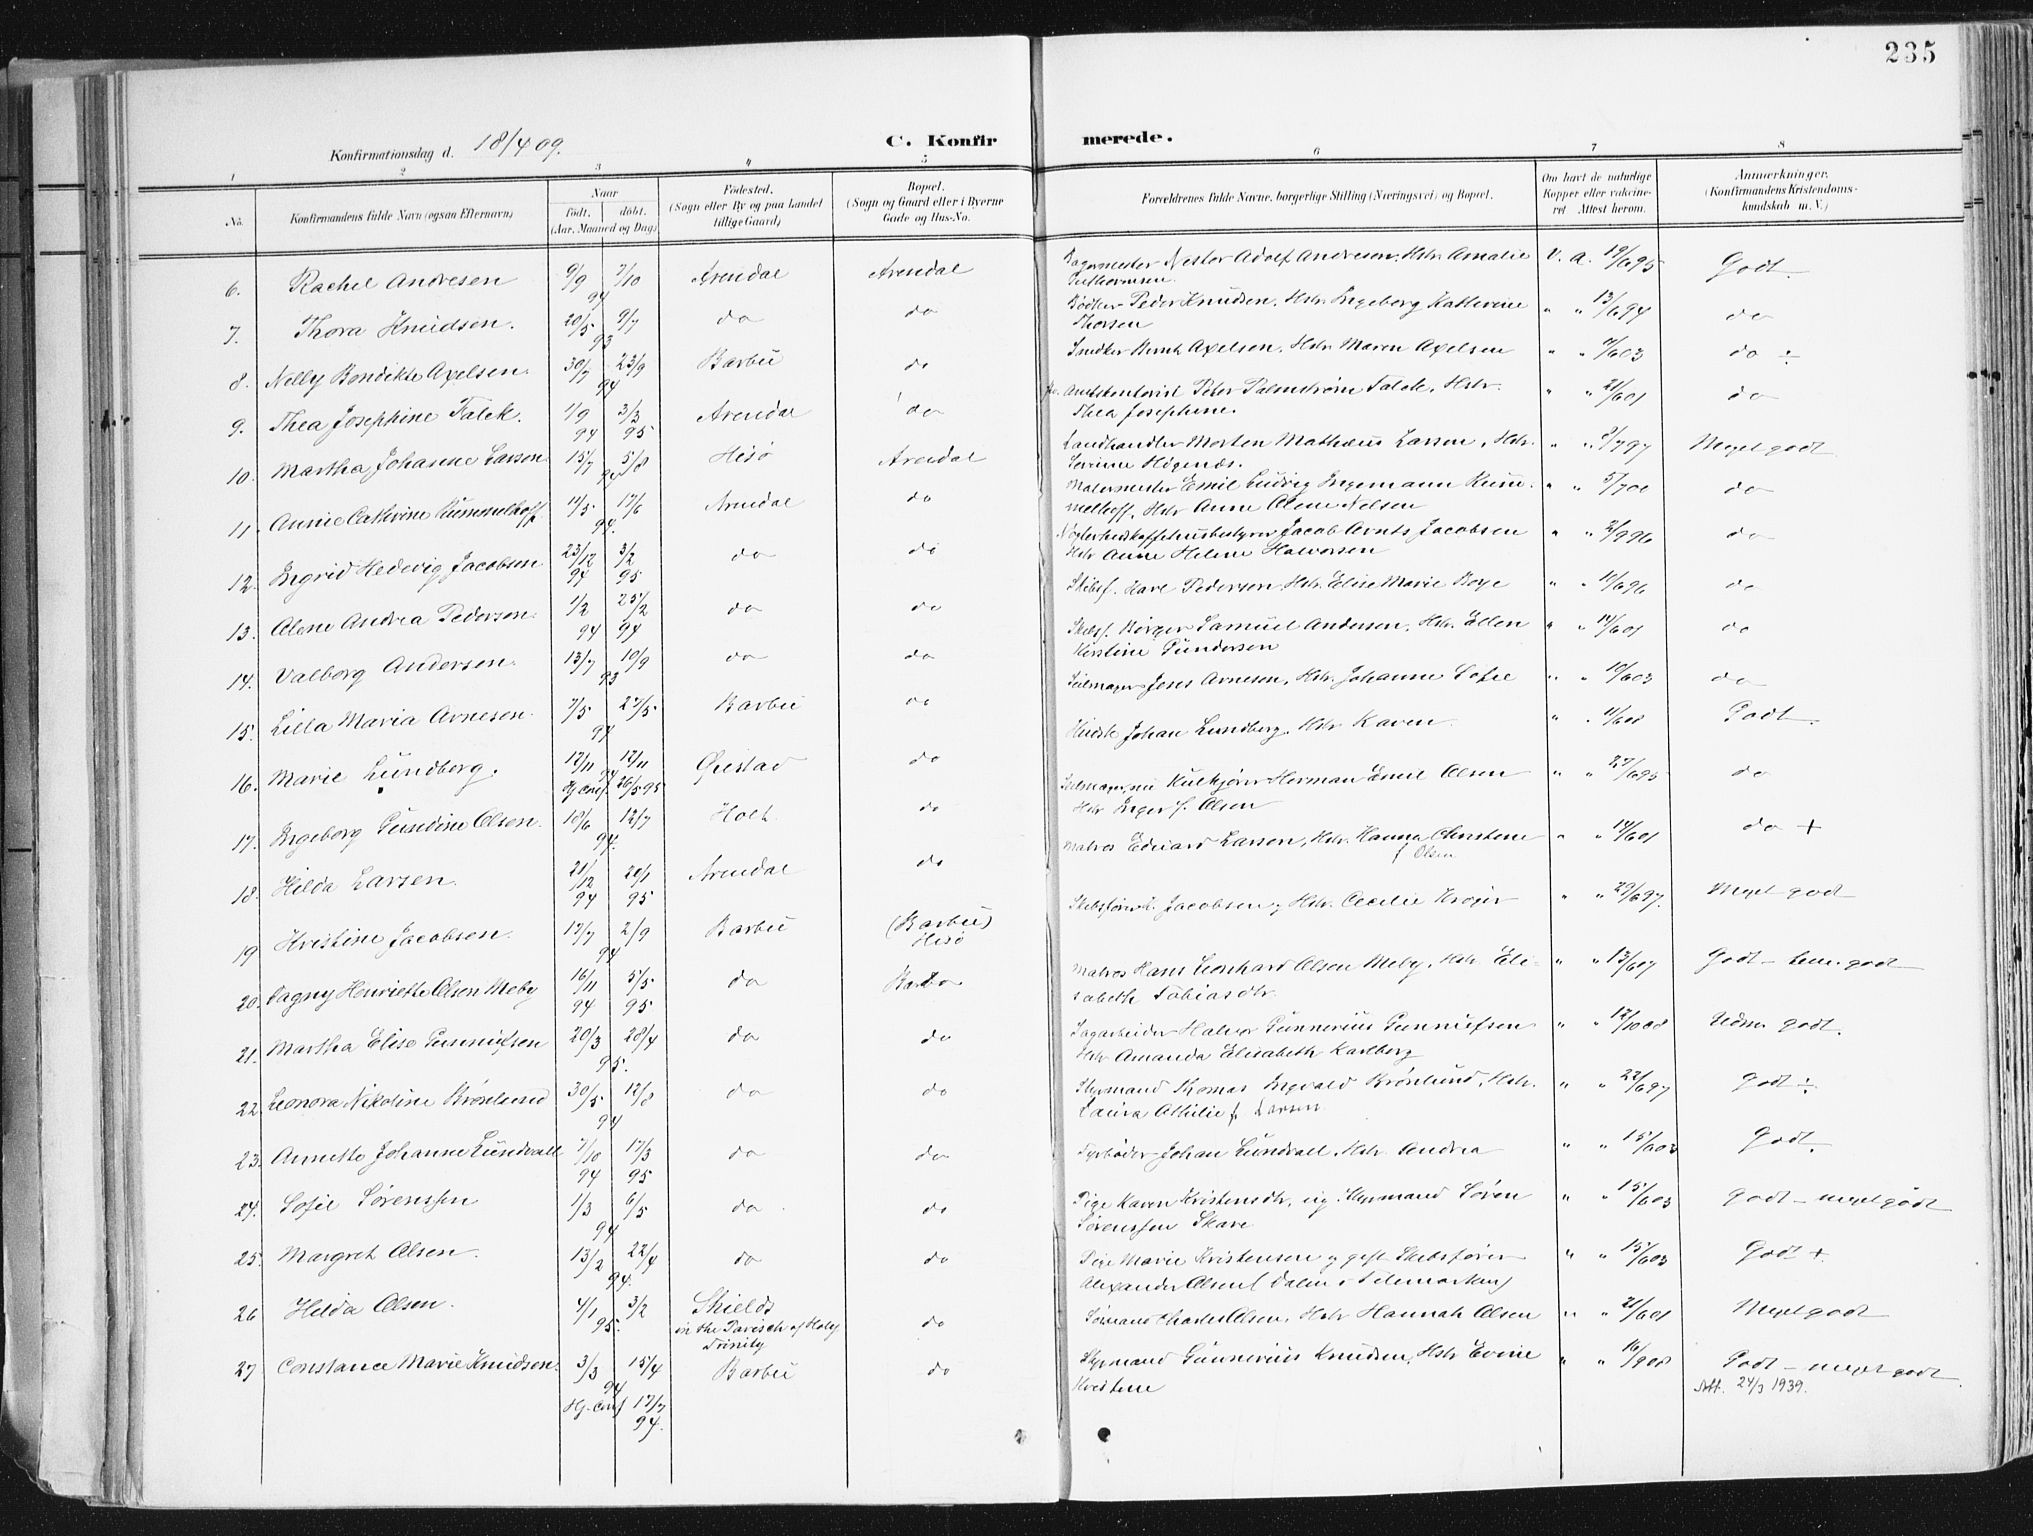 235
Konfirmationsdag d. 18/4 09. C. Konfirmerede.
1 2 3 4 5 6 7 8
No. Konfirmandens fulde Navn (ogsaa Efternavn) Naar født, døbt. (Aar, Maaned og Dag) Fødested. (Sogn eller By og paa Landet tillige Gaard) Bopæl. (Sogn og Gaard eller i Byerne Gade og Hus-No. Forældrenes fulde Navne, borgerlige Stilling (Næringsvei) og Bopæl. Om havt de naturlige Kopper eller vakcineret Attest herom. Anmærkninger. (Konfirmandens Kristendomskundskab m. V.)
6. Rachel Andresen 9/9 7/10 94 Arendal Arendal Nestor Adolf Andresen, Hstr. Amalie V. A. 19/6 95 Godt.
7. Thora Knudsen. 20/5 9/7 93 do do Bødker Peder Knudsen, Hstr. Ingeborg Kathrine Thorsen " " 13/6 94 do
8. Nelly Bendikte Axelsen. 30/7 23/9 94 Barbu do Snedker Bernh. Axelsen, Hstr. Maren Axelsen " " 03 do ÷
9. Thea Josephine Falck. 1/9 94 3/3 95 Arendal do Amtskontorist Peter Palmstrøm Falck, Hstr. Thea Josephine. " " 21/6 01 do
10. Martha Johanne Larsen 15/7 5/8 94 Hisø Arendal Landhandler Morten Mathæus Larsen, Hstr. " " 97 Meget godt
11. Annie Cathrine Kummelhoff 11/5 17/6 94. Arendal do Malermester Emil Ludvig Ingemann Kummelhoff, Hstr Anne Olene Nelsen " " 5/7 00 do
12. Ingrid Hedevig Jacobsen 23/12 94 3/2 95 do do Jacob Arnts Jacobsen Hstr Anne Helene Halvorsen " " 2/9 96 do
13. Olene Andrea Pedersen. 1/2 94 25/2 94 do do Skibsf. Have Pedersen, Hstr. Elise Marie Boye " " 10/6 96 do
14. Valborg Andersen. 13/7 10/9 93 do do Skibsf. Børger Samuel Andersen, Hstr. Ellen Kirstine Gundersen " " 14/6 01 do
15. Lilla Maria Arnesen. 7/5 27/5 94 Barbu do Seilmager Jens Arnesen, Hstr. Johanne Sofie " " 10/6 03 do
16. Marie Lundberg. 17/11 17/11 94 Hj. conf. 26/5 95 Øiestad do Johan Lundberg, Hstr Karen. " " 11/6 08 Godt.
17. Ingeborg Gundine Olsen. 18/6 12/7 94. Holt. do Seilmager, nu Kulkjører Herman Emil Olsen Hstr Inger f. Olsen " " 27/6 95 do
18. Hilda Larsen. 21/12 94 20/1 95 Arendal do Matros Edvard Larsen, Hstr. Hanna Christine f Olsen " " 14/6 01 do +
19 Kristine Jacobsen. 17/7 2/9 94 Barbu (Barbu) Hisø Skibsfører Jacobsen, Hstr. Cecilie Krøger " " 29/6 97. Meget godt
20. Dagny Henriette Olsen Meby 16/11 94 5/5 95 do Barbu Matros Hans Leonhard Olsen Meby, Hstr. Elisabeth Tobiasdtr. " " 13/6 07 Godt – godt
21. Martha Elise Gunnufsen 20/3 28/4 95. do do Sagarbeider Halvor Gunnerius Gunnufsen Hstr. Amanda Elisabeth Karlberg " " 12/10 08 godt.
22. Leonora Nikoline Brønlund 30/5 12/8 94 do do Styrmand Romar Ingvald Brønlund, Hstr. Laura Athilie f. Larsen " " 22/6 97 Godt ÷
23. Annette Johanne Lundvall 7/10 94 17/3 95 do do Fyrbøder Johan Lundvall Hstr. Andrea " " 15/6 03 Godt.
24. Sofie Sørenssen 1/3 6/5 94 do do Pige Karen Kristensdtr, ug. Styrmand Søren Sørenssen Skare " " 15/6 03 Godt – meget godt
25. Margreth Olsen. 13/2 22/4 94. do do Pige Marie Kristensen og gift Skibsfører Alexander Olsen (Dalen i Telemarken) " " 15/6 03 Godt +
26 Hilda Olsen. 4/1 3/2 95. Shields in the Parisch of Holy Trinity do Sømand Charles Olsen, Hstr Hannah Olsen " " 21/6 01 Meget godt
27 Constance Marie Knudsen. 3/3 15/4 94 Hj. conf 17/7 94. Barbu do Styrmand Gunnerius Knudsen, Hstr Evine Kristene " " 16/9 08 Godt – meget godt.
Att. 24/3 1939.